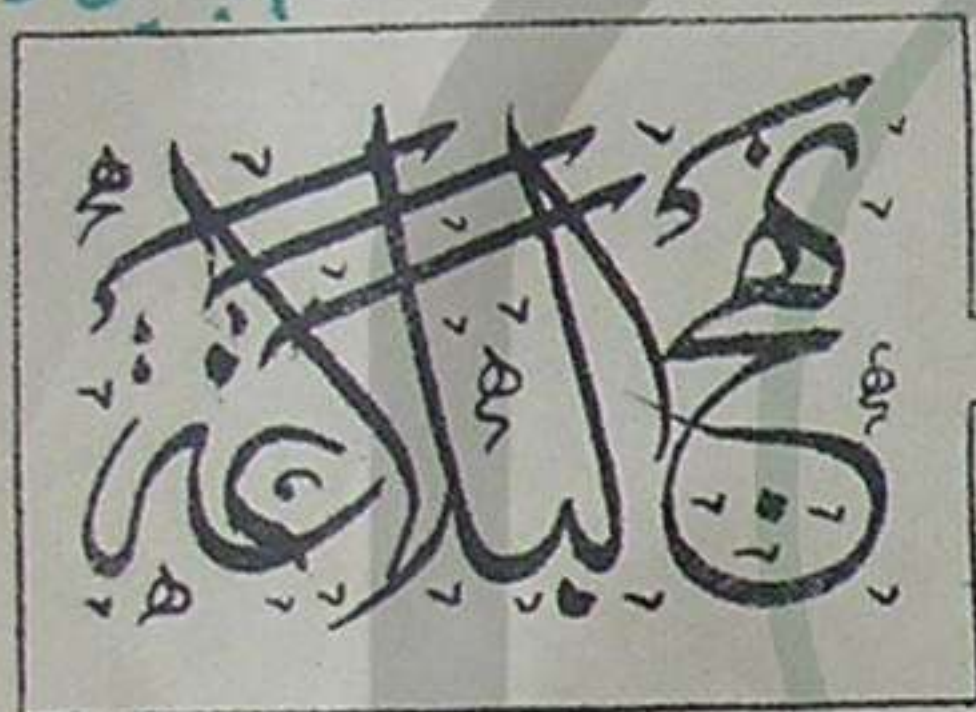 نهج البلاغة